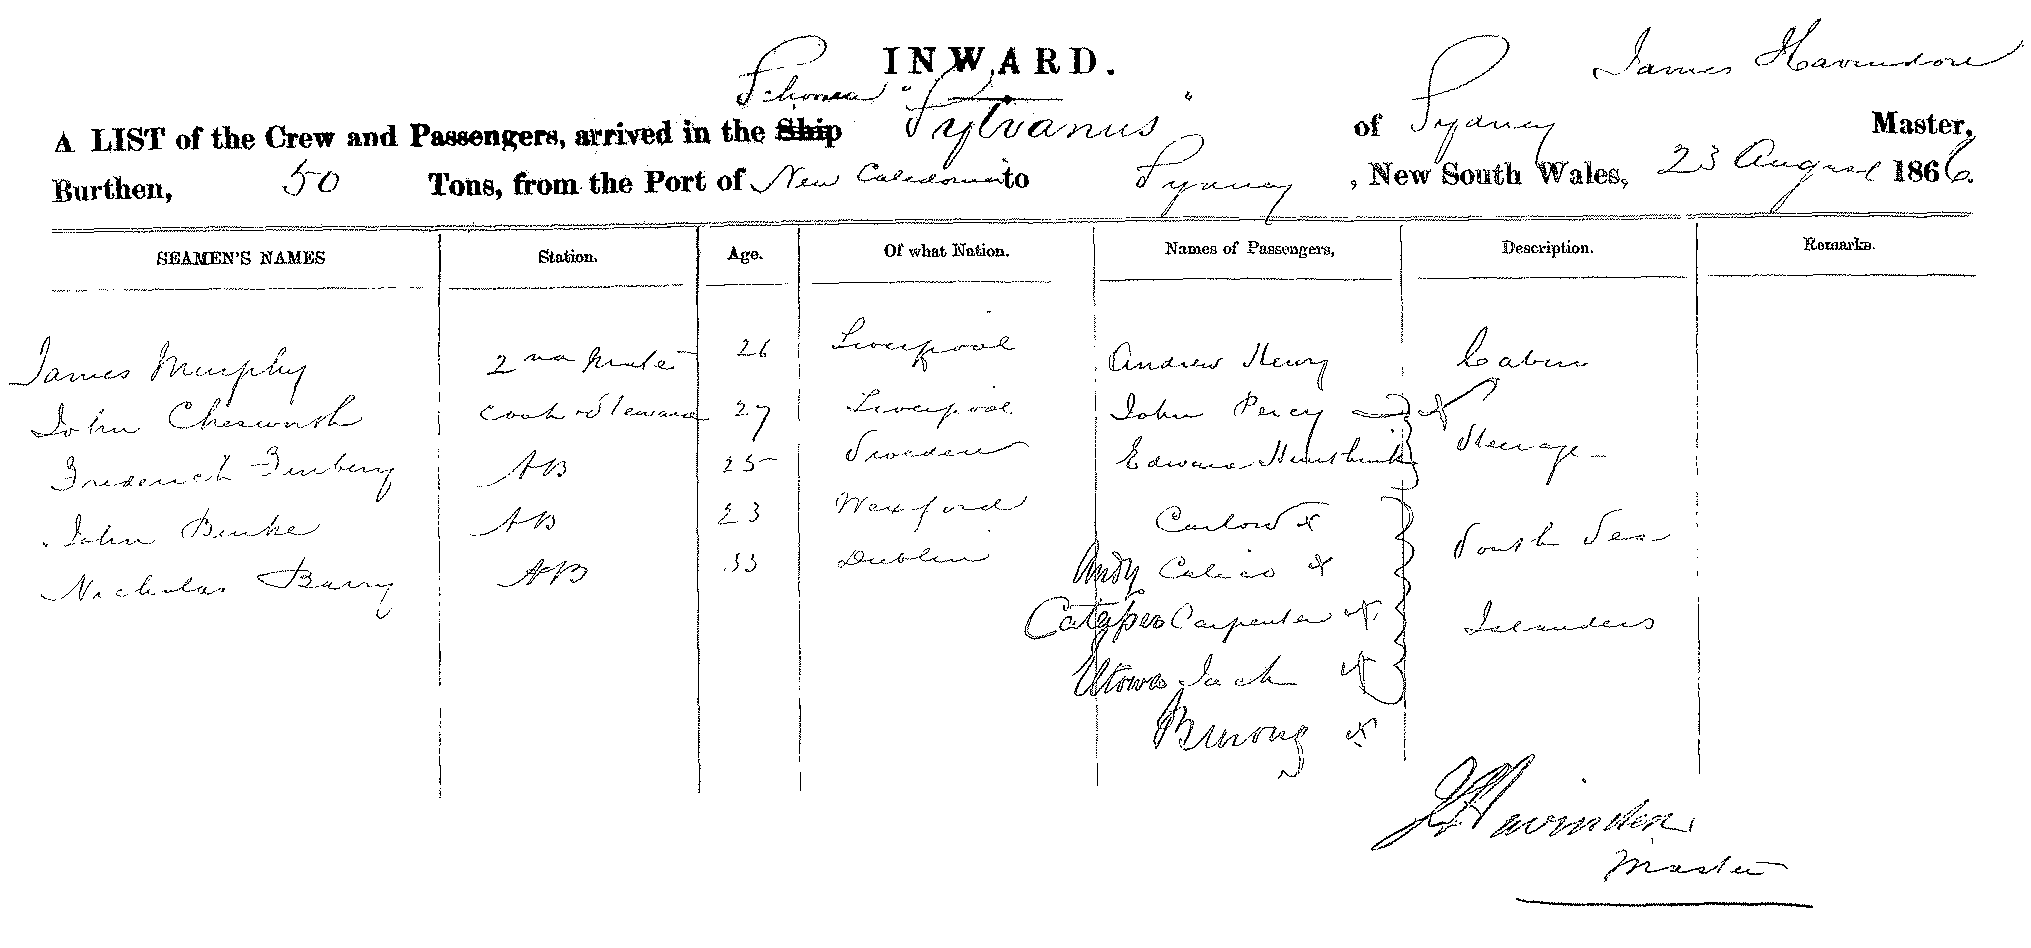 INWARD.
James Havindore
A LIST of the Crew and Passengers, arrived in the Ship "Sylvanus" of Sydney Master,
Burthen, 50 Tons, from the Port of New Caledonia to Sydney, New South Wales, 23 August 1866.
SEAMEN'S NAMES Station. Age. Of what Nation. Names of Passengers, Description. Remarks.
James Murphy 2nd Mate 26 Liverpool Andrew Henry Cabin
John Chesworth Cook & Steward 27 Liverpool John Percy
Frederick AB 25 Sweden Edward Steerage
John Burke AB 23 Wexford Carlow x South Sea
Nicholas Barry AB 33 Dublin Andy Calico x
Carpenter x Islanders
Utowa Jack x
x
Master